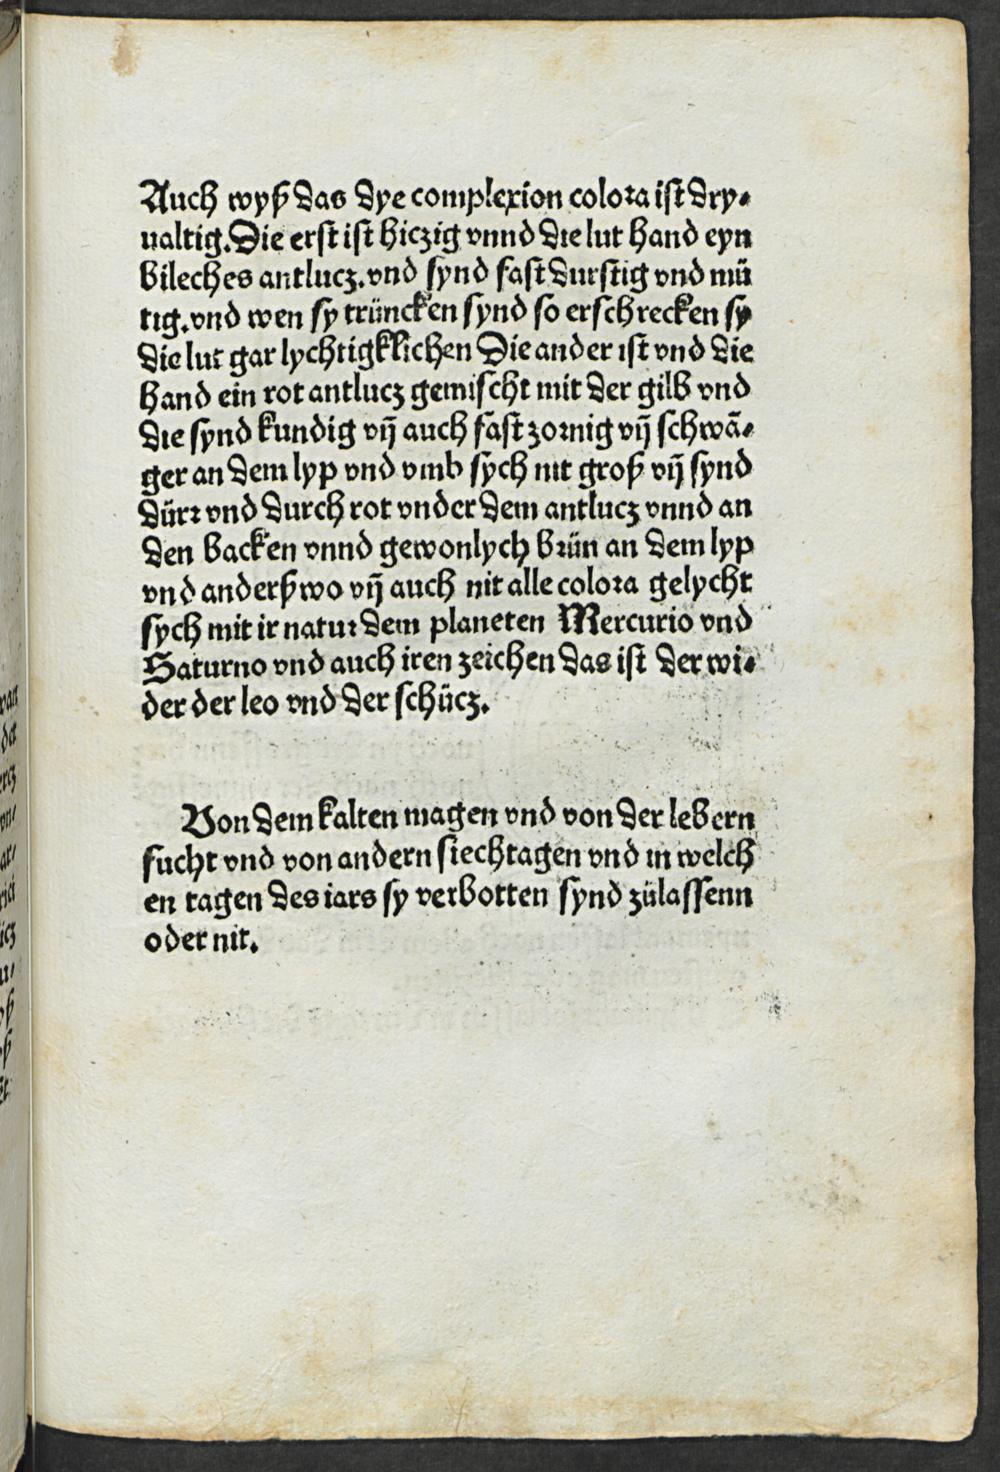 Auch wyß das dye complexion colora ist dry⸗
ualtig. Die erst ist hiczig vnnd die lut hand eyn
bileches antlucz. vnd synd fast durstig vnd mü
tig. vnd wen sy trüncken synd so erschrecken sy
die lut gar lychtigklichen Die ander ist vnd die
hand ein rot antlucz gemischt mit der gilb vnd
die synd kundig vñ auch fast zornig vñ schwā⸗
ger an dem lyp vnd vmb sych nit groß vñ synd
dürr vnd durch rot vnder dem antlucz vnnd an
den backen vnnd gewonlych brün an dem lyp
vnd anderßwo vñ auch nit alle colora gelycht
sych mit ir natur dem planeten Mercurio vnd
Saturno vnd auch iren zeichen das ist der wi⸗
der der leo vnd der schücz.
Von dem kalten magen vnd von der lebern
sucht vnd von andern siechtagen vnd in welch
en tagen des iars sy verbotten synd zülassenn
oder nit.